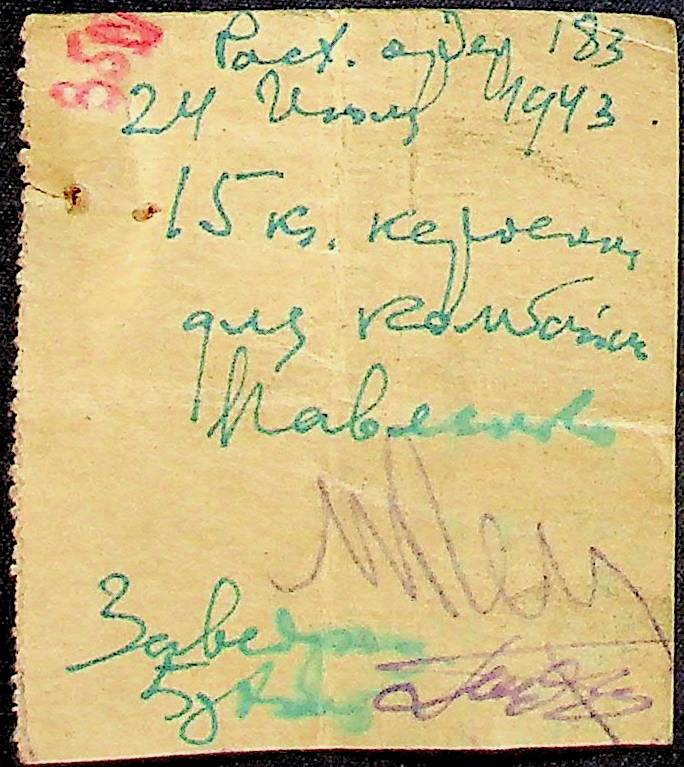 350
Расх. ордер 183
24 Июля 1943.
15 кг. керосина
для комбайна
Павленко
Заведующ